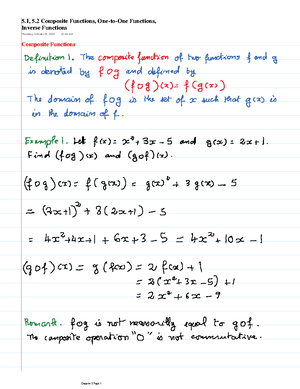 5.1, 5.2 Composite Functions, One-to-One Functions,
Inverse Functions
Composite Functions
Definition 1. The composite function of two functions f and g
is denoted by f∘g and defined by
(f∘g)(x) = f(g(x))
The domain of f∘g is the set of x such that g(x) is
in the domain of f.
Example 1. Let f(x) = x² + 3x - 5 and g(x) = 2x + 1.
Find (f∘g)(x) and (g∘f)(x).
(f∘g)(x) = f(g(x)) = g(x)² + 3 g(x) - 5
= (2x+1)² + 3(2x+1) - 5
= 4x² + 4x + 1 + 6x + 3 - 5 = 4x² + 10x - 1
(g∘f)(x) = g(f(x)) = 2 f(x) + 1
= 2(x² + 3x - 5) + 1
= 2x² + 6x - 9
Remark. f∘g is not necessarily equal to g∘f.
The composite operation "∘" is not commutative.
Chapter 5 Page 1